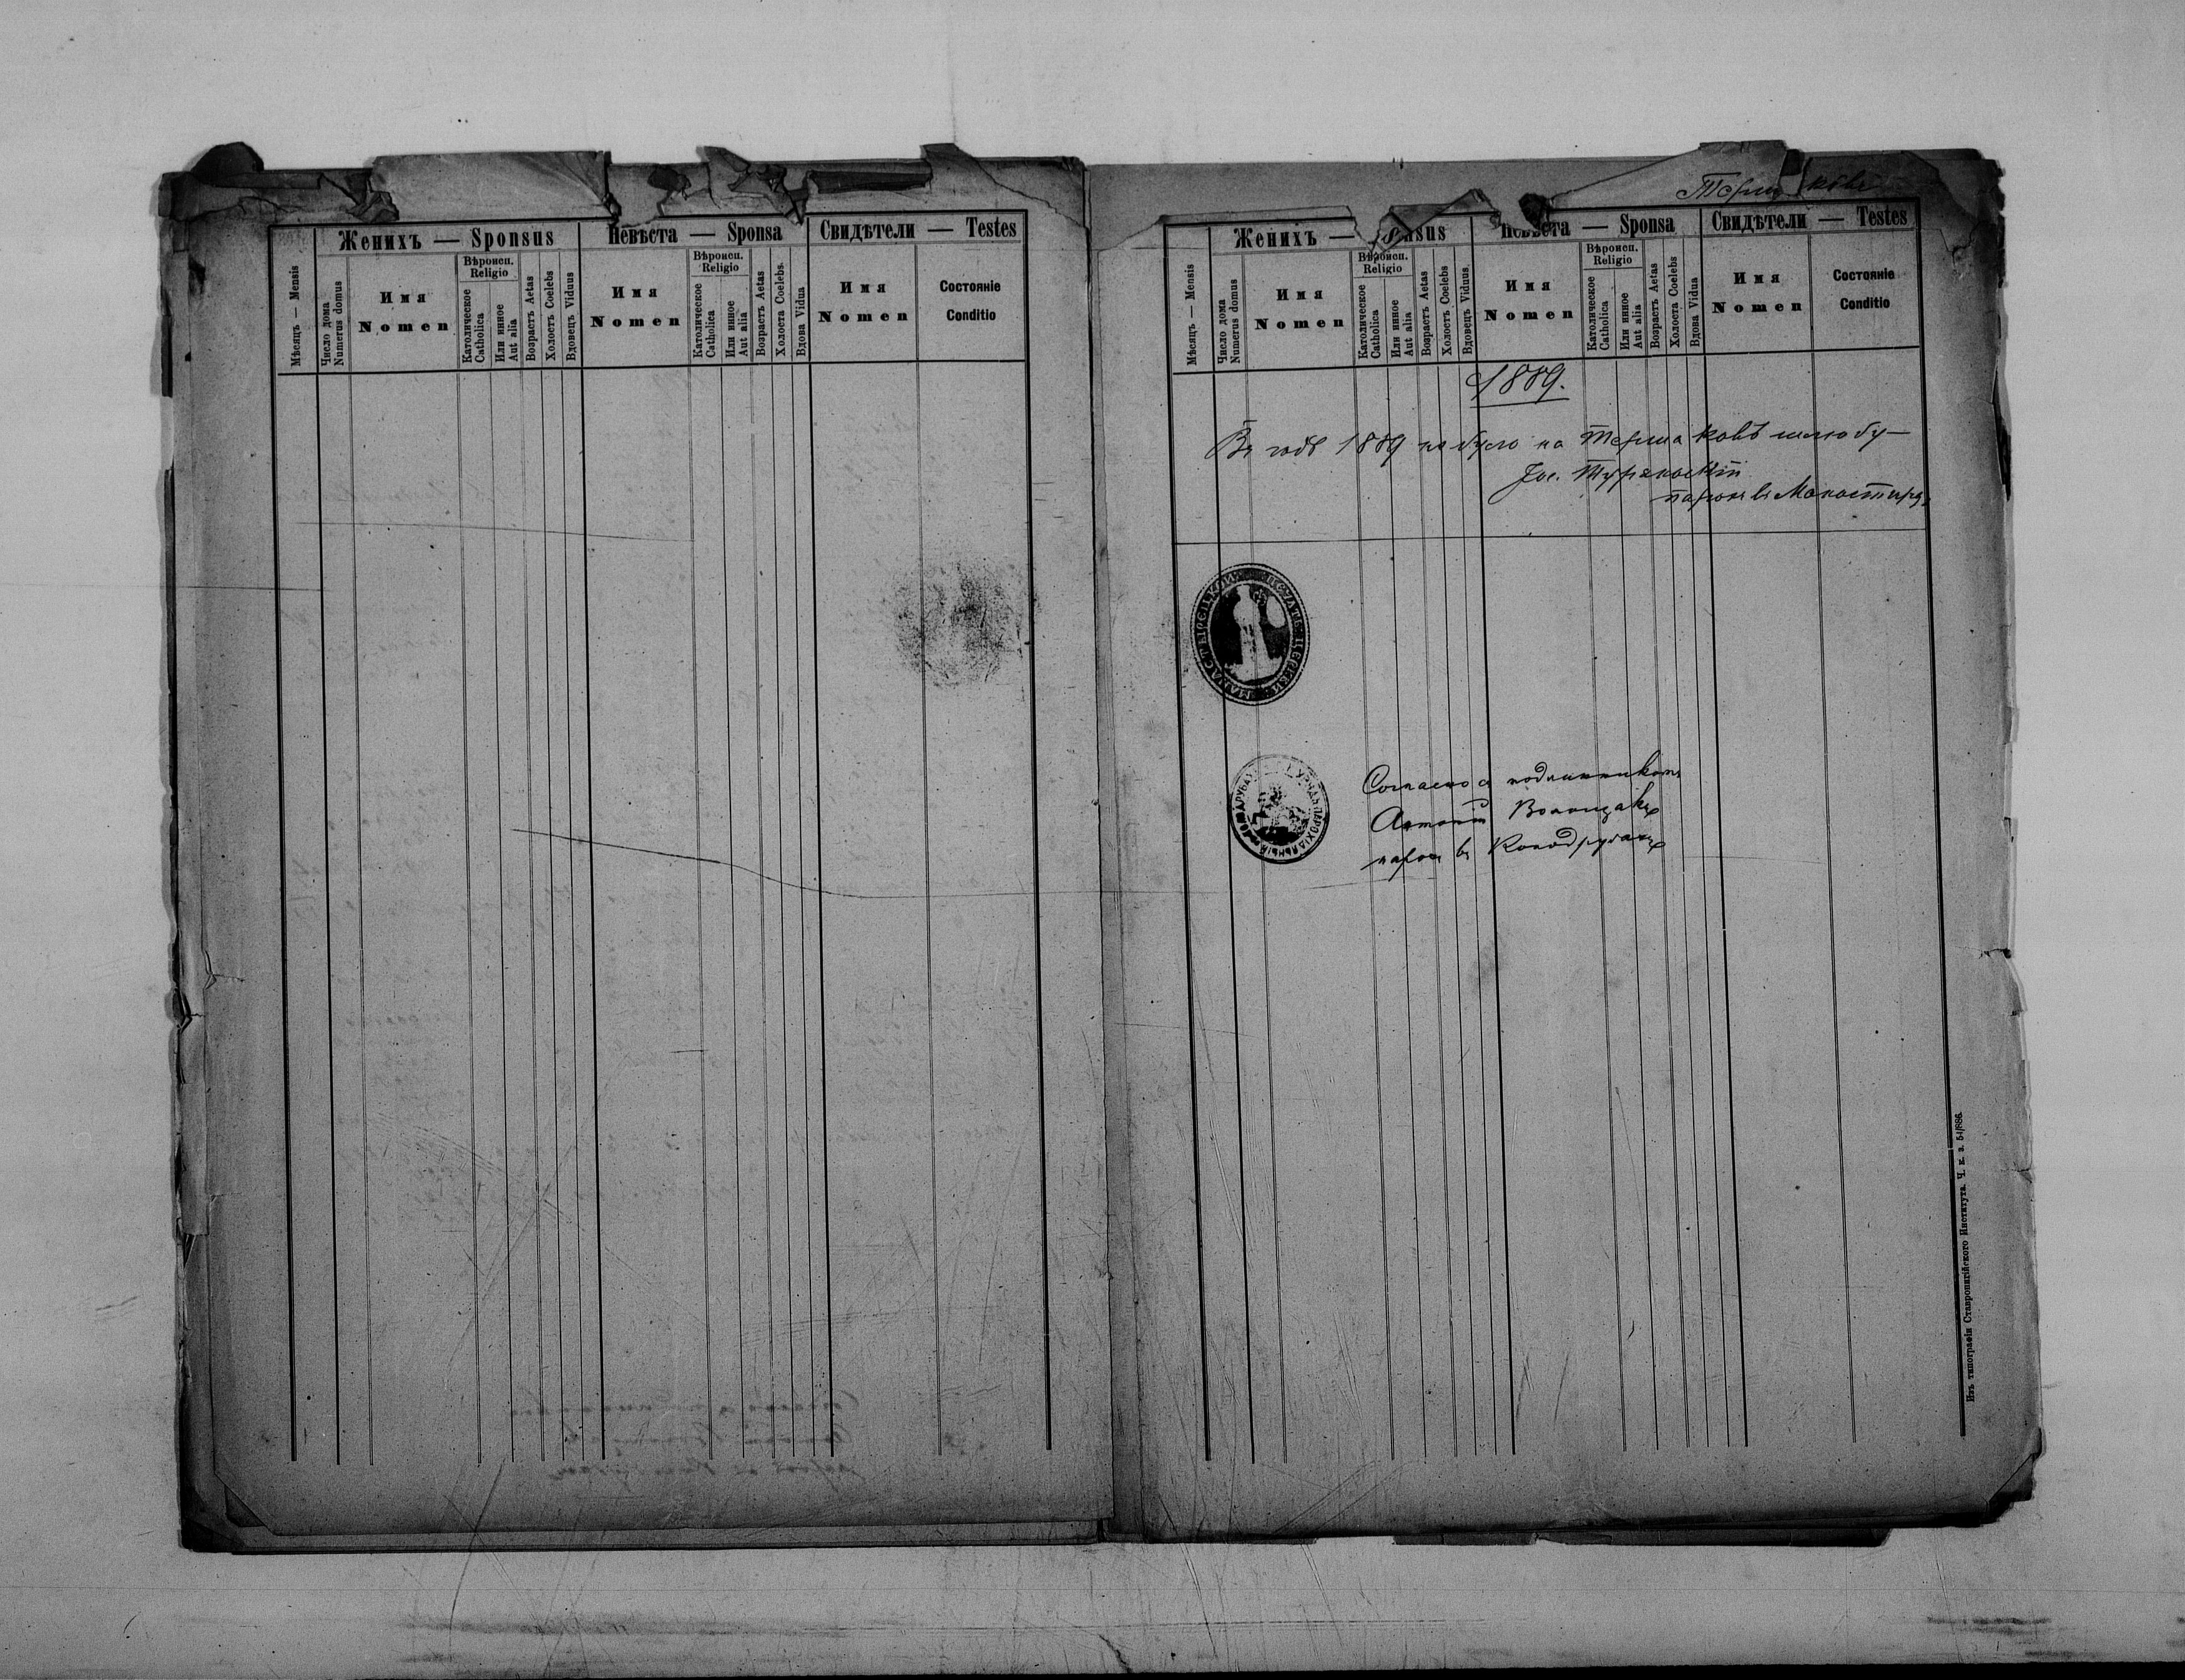 Женихъ — Sponsus
Невѣста — Sponsa
Свидѣтели — Testes
Мѣсяцъ — Mensis
Число дома
Numerus domus
Имя
Nomen
Вѣроисп.
Religio
Католическое
Catholica
Или инное
Aut alia
Возрастъ Aetas
Холостъ Coelebs
Вдовецъ Viduus
Имя
Nomen
Вѣроисп.
Religio
Католическое
Catholica
Или инное
Aut alia
Возрастъ Aetas
Холоста Coelebs.
Вдова Vidua
Имя
Nomen
Состояніе
Conditio
Женихъ —
Невѣста — Sponsa
Свидѣтели — Testes
Мѣсяцъ — Mensis
Число дома
Numerus domus
Имя
Nomen
Вѣроисп.
Religio
Католическое
Catholica
Или инное
Aut alia
Возрастъ Aetas
Холостъ Coelebs
Вдовецъ Viduus.
Имя
Nomen
Вѣроисп.
Religio
Католическое
Catholica
Или инное
Aut alia
Возрастъ Aetas
Холоста Coelebs
Вдова Vidua
Имя
Nomen
Состояніе
Conditio
1889.
Въ годѣ 1889 не було на Тершаковѣ шлюбу —
Іос.
парох въ Монастирѣ
ПЕЧАТЬ ЦЕРКВИ
Согласно съ подлинникомъ
Антоній
парох въ Конюдрубахъ
Изъ типографіи Ставропигійского Института. Ч. к. з. 54/886.